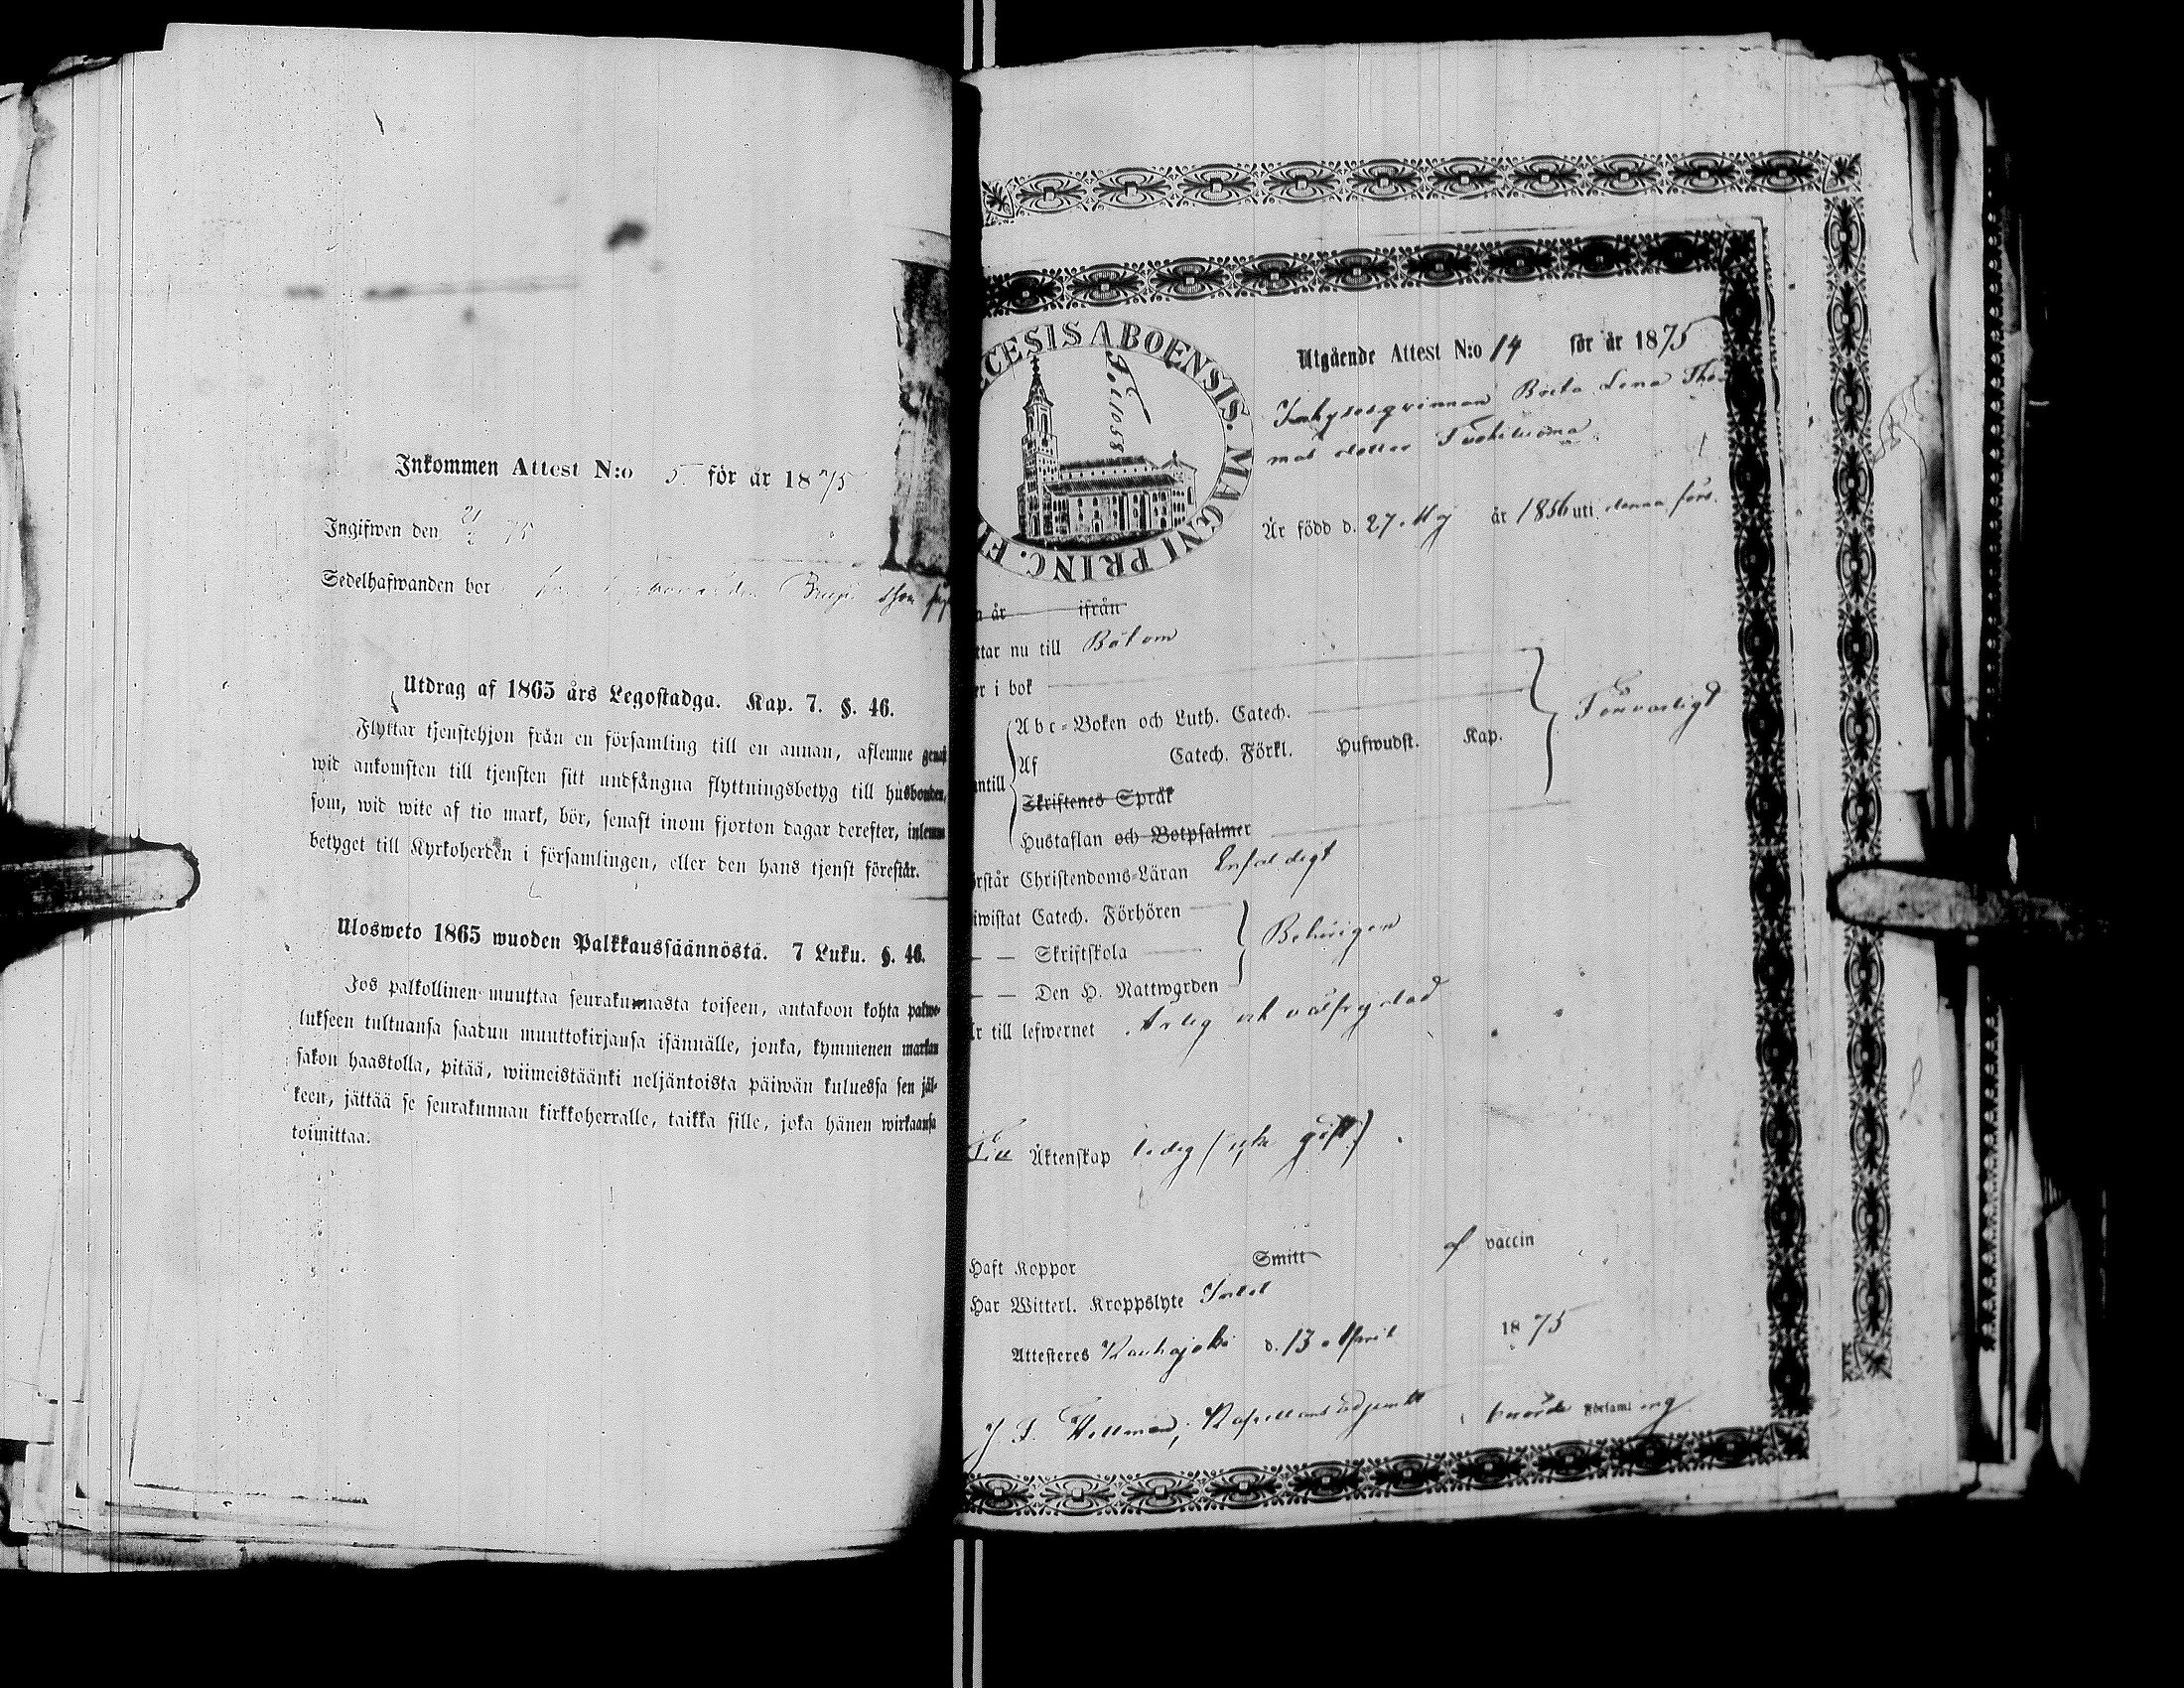 Inkommen Attest N:o 5. för år 1875
Ingifwen den 21/2 75
Sedelhafwanden bor
Utdrag af 1865 års Legostadga. Kap. 7. §. 46.
Flyttar tjenstehjon från en församling till en annan, aflemne genast
wid ankomsten till tjensten sitt undfångna flyttningsbetyg till husbonden,
som, wid wite af tio mark, bör, senast inom fjorton dagar derefter, inlemna
betyget till Kyrkoherden i församlingen, eller den hans tjenst förestår.
Ulosweto 1865 wuoden Palkkaussäännöstä. 7 Luku. §. 46.
Jos palkollinen muuttaa seurakunnasta toiseen, antakoon kohta palwe-
lukseen tultuansa saadun muuttokirjansa isännälle, jonka, kymmenen markan
sakon haastolla, pitää, wiimeistäänki neljäntoista päiwän kuluessa sen jäl-
keen, jättää se seurakunnan kirkkoherralle, taikka sille, joka hänen wirkaansa
toimittaa.
CESIS ABOENSIS. MAGNI PRINC. FI
Fol. 1058
Utgående Attest N:o 14 för år 1875
Inhysesqvinnan Brita Lena Tho
mas dotter
Är född d. 27. Maj år 1856 uti denna förs.
n år ifrån
ttar nu till Bötom
er i bok
Abc-Boken och Luth. Catech.
Försvarligt
Af Catech. Förkl. Hufwudst. Kap.
antill
Skriftenes Språk
Hustaflan och Botpsalmer
örstår Christendoms-Läran Enfaldigt
iwistat Catech. Förhören
— — Skriftskola
Behörigen
— — Den H. Nattwarden
Är till lefwernet Ärlig och välfrejdad
Till Äktenskap ledig (icke gift).
Haft Koppor Smitt af vaccin
Har Witterl. Kroppslyte Intet
Attesteres Kauhajoki d. 13 April 1875
J. F. Hellman, Kapellans adjunkt i berörde Församl ing